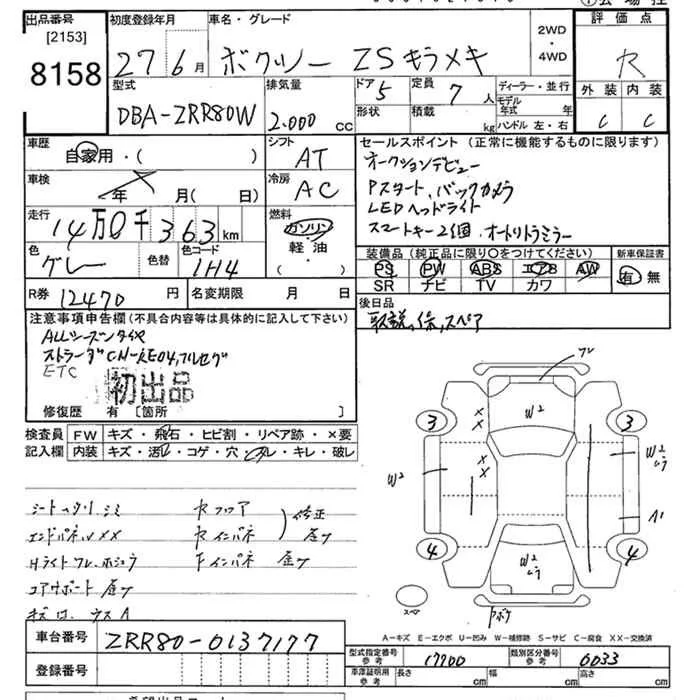 出品番号
[2153]
8158
初度登録年月
27年6月
車名・グレード
ボクシー ZSキラメキ
2WD
・
4WD
評価点
R
外装 内装
C C
型式
DBA-ZRR80W
排気量
2.000 cc
ドア 5
形状
定員 7人
積載 kg
ディーラー・並行
モデル年式 年
ハンドル 左・右
車歴
自家用・( )
シフト
AT
車検
年 月(日)
冷房
AC
走行
14万0千363km
燃料
ガソリン・軽油・( )
色
グレー
色替
色コード
1H4
R券 12470円
名変期限 月 日
セールスポイント(正常に機能するものに限ります)
オークションデビュー
Pスタート、バックカメラ
LEDヘッドライト
スマートキー2個、オートリトラミラー
装備品(純正品に限り○をつけてください)
新車保証書
PS PW ABS エアB AW
SR ナビ TV カワ
有 無
後日品
取説、保、スペア
注意事項申告欄(不具合内容等は具体的に記入して下さい)
ALLシーズンタイヤ
ストラーダCN-RE04,フルセグ
ETC
初出品
修復歴 有[箇所 ]
検査員記入欄
FW キズ・飛石・ヒビ割・リペア跡・×要
内装 キズ・汚レ・コゲ・穴・スレ・キレ・破レ
シートヘタリ シミ
エンドパネルXX
Hライトワレ、ホシュウ
コアサポート 歪ケ
Rフロア
Rインパネ
修正
歪ケ
Fインパネ 歪ケ
ワレ
W2
3
3
W2
W2
4
4
A1
W2
スペア
A-キズ E-エクボ U-凹み W-補修跡 S-サビ C-腐食 XX-交換済
車台番号 ZRR80-0137177
登録番号
型式指定番号 参考 17700
類別区分番号 参考 6033
車庫証明用 参考 長さ cm 幅 cm 高さ cm